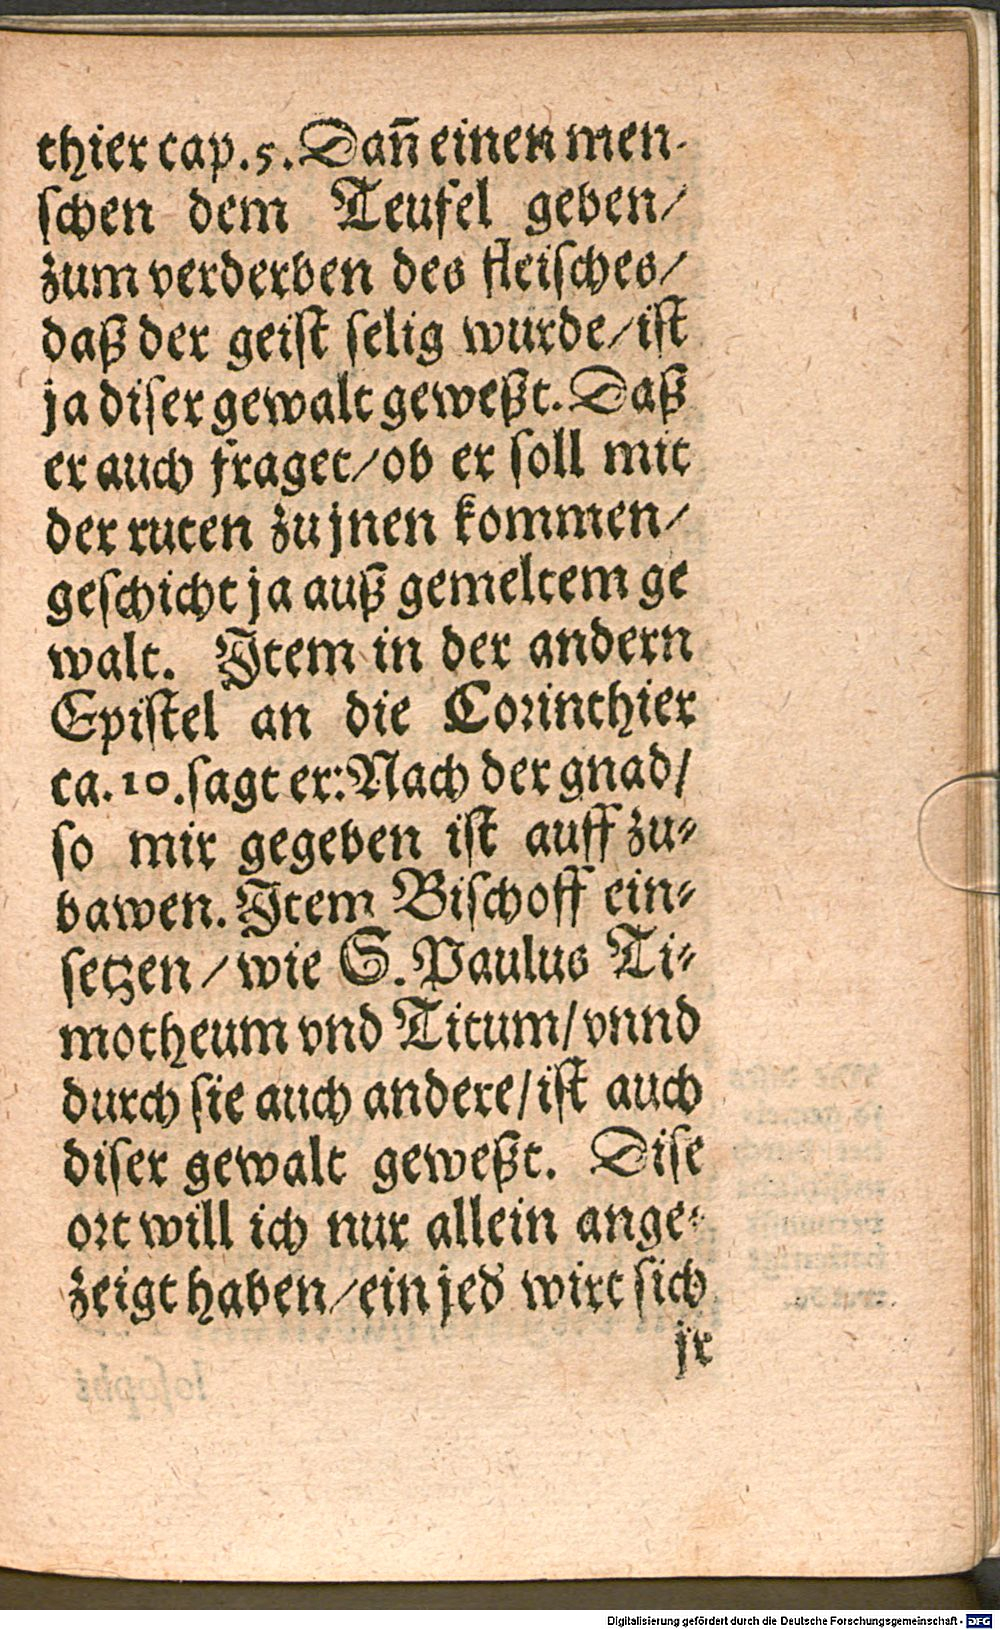 thier cap. 5. Dañ einen men-
schen dem Teufel geben/
zum verderben des fleisches/
daß der geist selig wurde/ist
ja diser gewalt geweßt. Daß
er auch fraget/ob er soll mit
der ruten zu jnen kommen/
geschicht ja auß gemeltem ge
walt. Item in der andern
Epistel an die Corinthier
ca. 10. sagt er: Nach der gnad/
so mir gegeben ist auff zu-
bawen. Item Bischoff ein-
setzen/wie S. Paulus Ti-
motheum vnd Titum/vnnd
durch sie auch andere/ist auch
diser gewalt geweßt. Dise
ort will ich nur allein ange-
zeigt haben/ein jed' wirt sich
jr
Digitalisierung gefördert durch die Deutsche Forschungsgemeinschaft - DFG